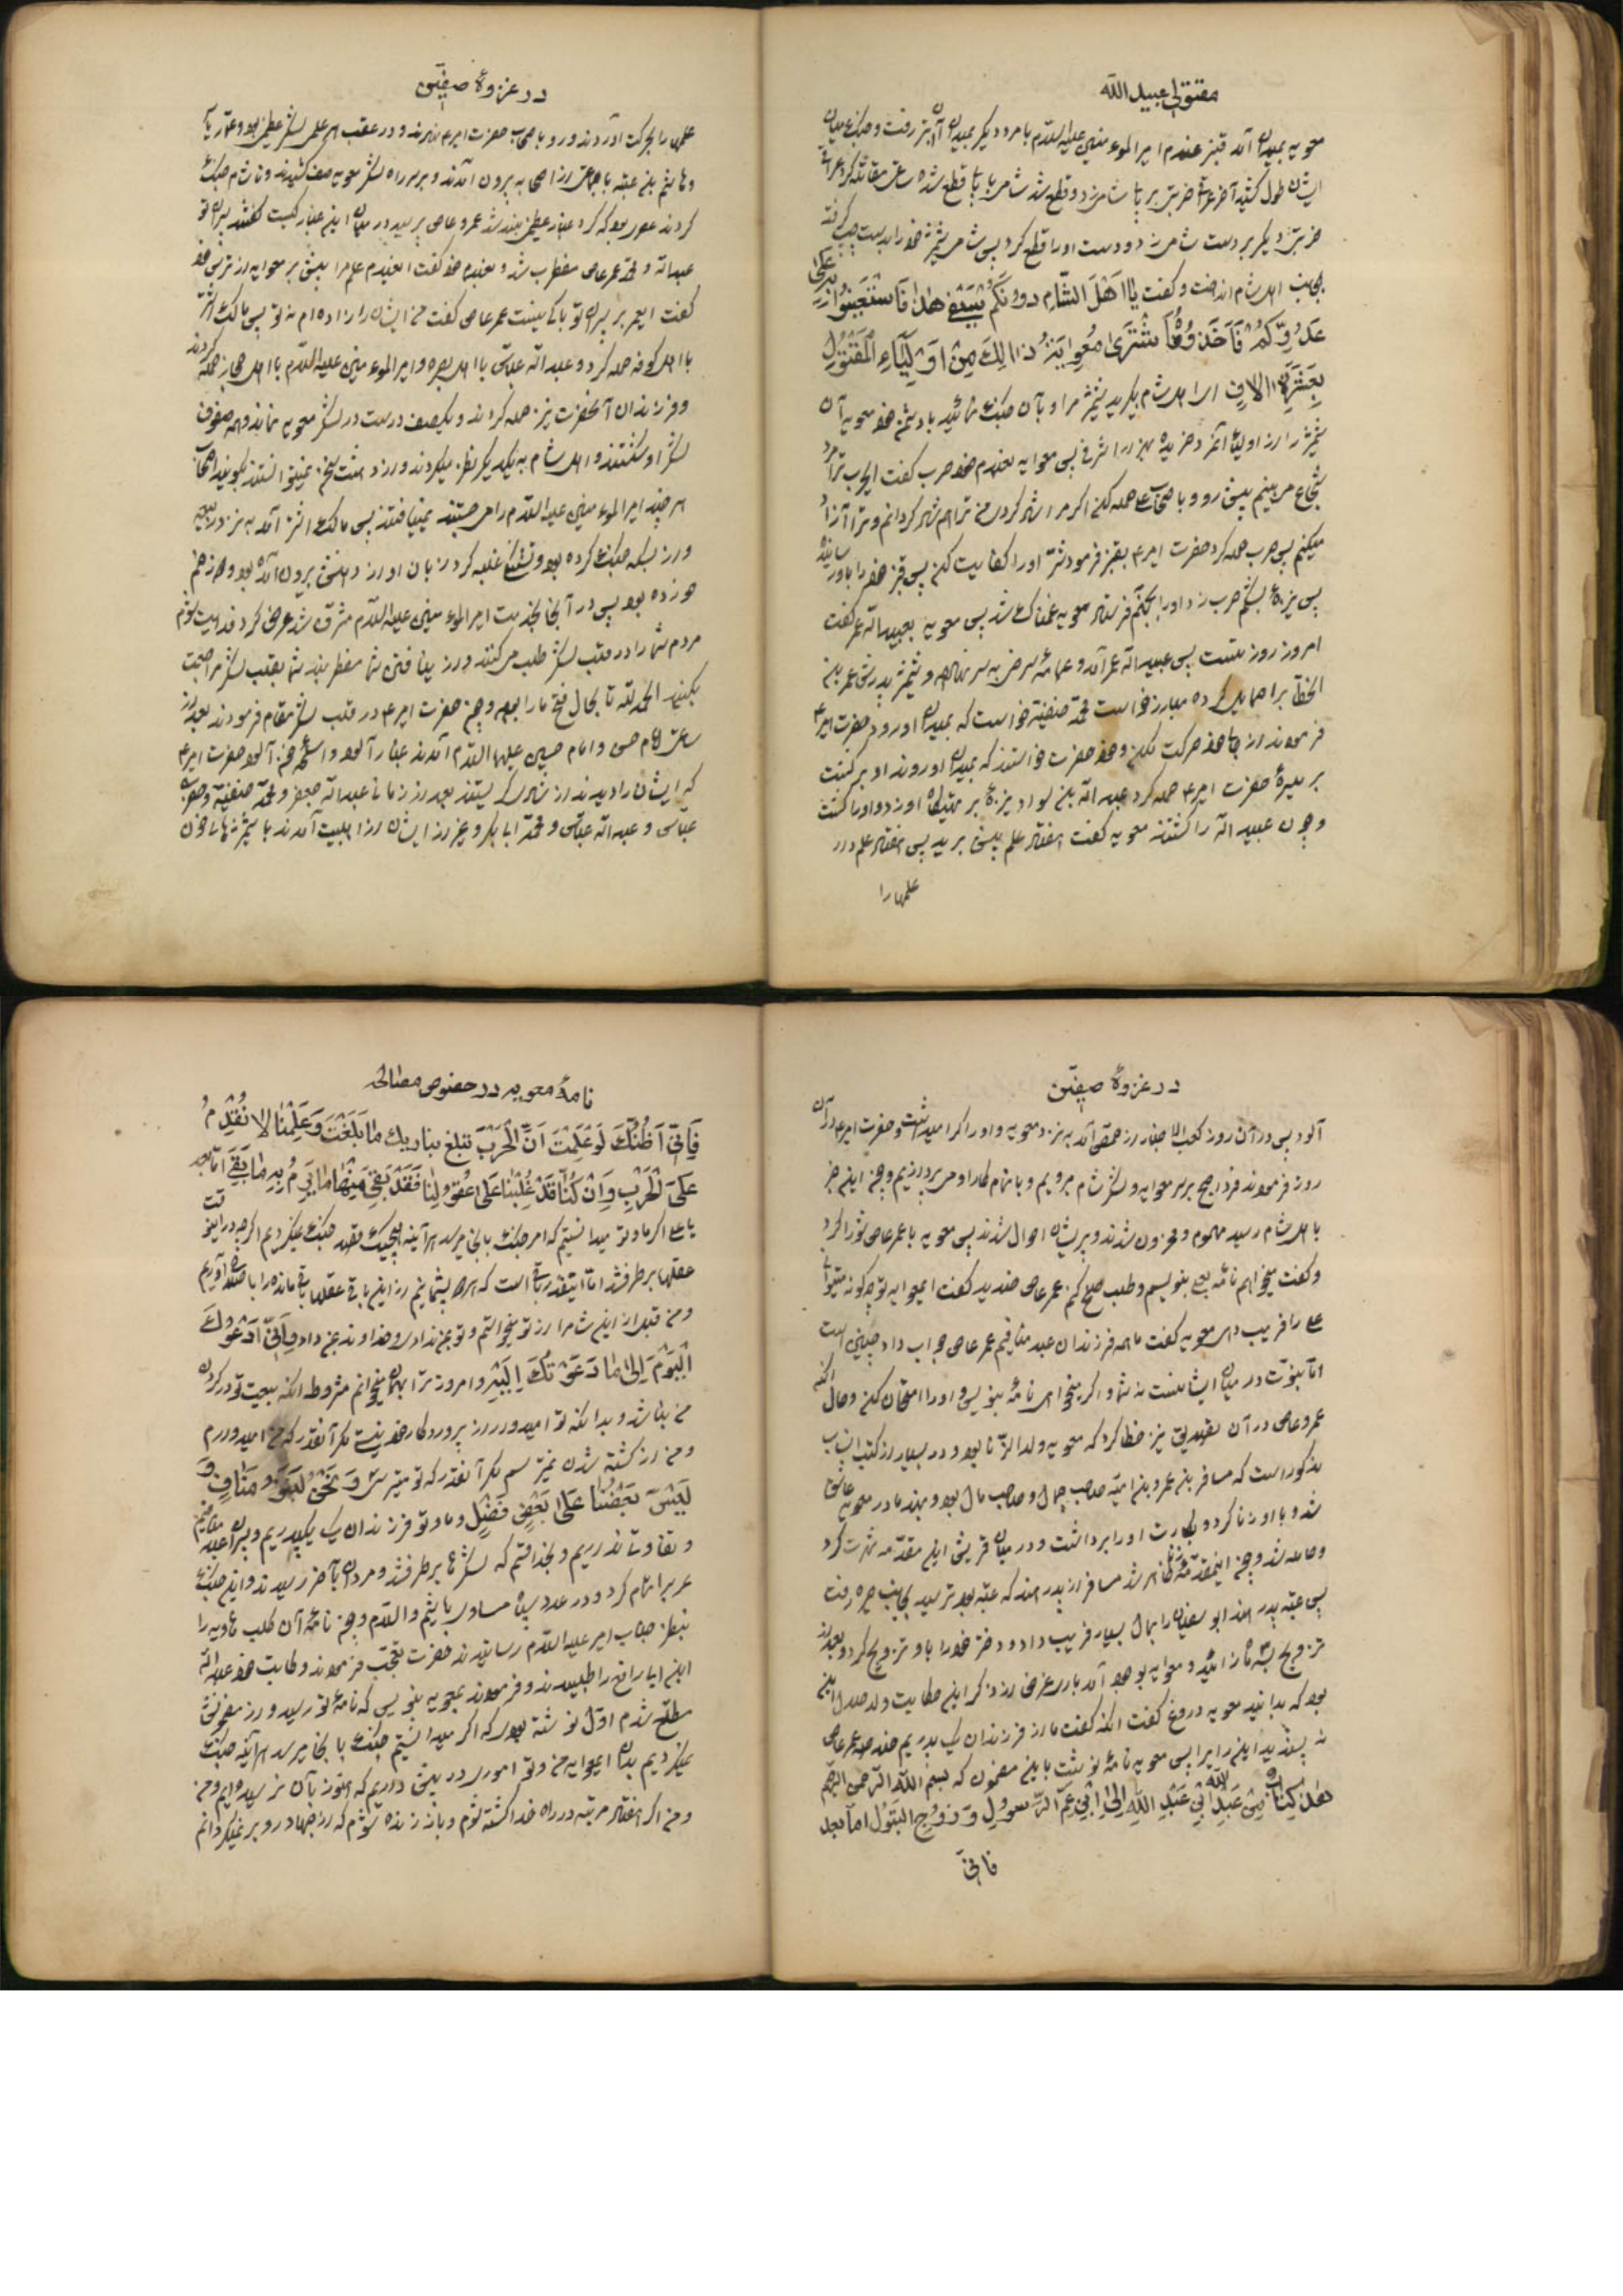 مقتولی عبید الله
معویه بمیدان آمد قنبر غلام امیر المؤمنین علیه السلام با مرد دیگر بمیدان آن رفت و جنک میان
ایشان طول کشید آخر ضربتی بر پای شامی زد و قطع شد شامی با پای قطع شده ساعتی مقاتله کرد
ضربتی دیگر بر دست شامی زد و دست او را قطع کرد پس شامی شمشیر خود را بدست چپ گرفته
بجانب اهل شام انداخت و گفت یا اهل الشام دونکم سیفی هذا فاستعینوا به علی
عدوکم فاخذوه فاشتری معویة ذالک من اولیاء المقتول
بعشرة الاف ای اهل شام بگیرید شمشیر مرا و بآن جنک نمائید با دشمن خود معویه آن
شمشیر را از اولیای آنمرد خریده بهزار اشرفی پس معویه بغلام خود حرب گفت ای حرب ترا مرد
شجاع می بینم پیش رو و باصحاب علی حمله کن اگر مرا شاد کردی من ترا هم شاد گردانم و ترا آزاد
میکنم پس حرب حمله کرد حضرت امیر ع بقنبر فرمود شر او را کفایت کن پس قنبر خود را باو رسانیده
پس نیزه بشکم حرب زد و او را بجهنم فرستاد معویه غمناک شد پس معویه بعبید الله عمر گفت
امروز روز تست پس عبید الله عمر آمد و عمامه سرخی بسر نهاده و شمشیر پدرش عمر بن
الخطاب را حمایل کرده مبارز خواست محمد حنفیه خواست که بمیدان او رود حضرت امیر ع
فرمودند از جای خود حرکت نکن و خود حضرت خواستند که بمیدان او روند او برگشت
بر میسره حضرت امیر ع حمله کرد عبد الله بن سوار نیزه بر تهیگاه او زد و او را کشت
و چون عبید الله را کشتند معویه گفت هفتاد علم پیش برید پس هفتاد علم دار
علمها را
در غزوهٔ صفین
علمها را بحرکت آوردند و رو باصحاب حضرت امیر ع نهادند و در عقب هر علمی لشکر عظیم بود و عمار یاسر
و هاشم بن عتبه با جماعتی از اصحاب بیرون آمدند و بر سر راه لشکر معویه صف کشیدند و تا شام جنک
کردند عصر بود که گرد و غبار عظیمی بلند شد عمرو عاص پرسید در میان این غبار کیست گفتند پسران تو
عبد الله و محمد عمرو عاص مضطرب شد و بغلام خود گفت ای غلام علم را پیش بر معویه از ترس خود
گفت ای عمر بر پسران تو باکی نیست عمر عاص گفت من ایشان را زاده ام نه تو پس مالک اشتر
با اهل کوفه حمله کرد و عبد الله عباس با اهل بصره و امیر المؤمنین علیه السلام با اهل حجاز حمله کردند
و فرزندان آنحضرت نیز حمله کردند و یکصف درست در لشکر معویه نماند و همه صفوف
لشکر او شکستند و اهل شام به یکدیگر نظر میکردند و از دهشت سخن نمیتوانستند بگویند اصحاب
هر چند امیر المؤمنین علیه السلام را می جستند نمییافتند پس مالک اشتر آمد به نزد
و از بسکه جنک کرده بود و تشنگی غلبه کرد زبان او از دهنش بیرون آمده بود و
خورده بود پس در آنجا بخدمت امیر المؤمنین علیه السلام مشرف شد عرض کرد فدایت شوم
مردم شما را در قلب لشکر طلب میکنند و از نیافتن شما مضطربند شما بقلب لشکر مراجعت
بکنید الحمد لله تا بحال فتح ما را بود و چون حضرت امیر ع در قلب لشکر مقام فرمودند بعد از
ساعتی امام حسن و امام حسین علیهما السلام آمدند غبار آلود و اسلحه خون آلود حضرت امیر ع
که ایشان را دیدند از شادی گریستند بعد از زمانی عبد الله جعفر و محمد حنفیه و
عباس و عبد الله عباس و محمد ابا بکر و غیر از ایشان از اهلبیت آمدند با شمشیرهای خون
در غزوهٔ صفین
آلود پس در آن روز کعب الاحبار از حمص آمد به نزد معویه و او را اکرام نمود و حضرت امیر ع در آن
روز فرمودند فردا صبح بر سر معویه و لشکر شام برویم و باتمام کار او می پردازیم و چون این خبر
باهل شام رسید مهموم و محزون شدند و پریشان احوال شدند پس معویه با عمر عاص شور کرد
و گفت میخواهم نامه بعلی بنویسم و طلب صلح کنم عمر عاص خندید گفت ای معویه تو چگونه میتوانی
علی را فریب دهی معویه گفت ما همه فرزندان عبد منافیم عمر عاص جواب داد چنین است
اما نبوت در میان ایشانست نه شما و اگر میخواهی نامه بنویس و او را امتحان کن و حال آنکه
عمرو عاص در آن تصدیق نیز خطا کرد که معویه ولد الزنا بود و در بسیار از کتب انساب
مذکور است که مسافر بن عمرو بن امیه صاحب جمال و صاحب مال بود و بهند مادر معویه عاشق
شد و با او زنا کرد و بکارت او را برداشت و در میان قریش این مقدمه شهرت کرد
و حامله شد و چون اینمقدمه ظاهر شد مسافر از پدر هند که عتبه بود ترسید بجانب حیره رفت
پس عتبه پدر هند ابو سفیان را بمال بسیار فریب داد و دختر خود را باو تزویج کرد و بعد از
تزویج سه ماه زائید و معویه بوجود آمد باری غرض از ذکر این حکایت ولد حلال این
بود که بدانید معویه دروغ گفت آنکه گفت ما از فرزندان یک پدریم خندید عمر عاص
نه پسندید این را پس معویه نامه نوشت باین مضمون که بسم الله الرحمن الرحیم
هذا کتاب من عبد الله ابن عبد الله الی ابن عم الرسول و زوج البتول اما بعد
فانی
نامهٔ معویه در خصوص مصالحه
فانی اظنک لو علمت ان الحرب تبلغ بنا و بک ما بلغت و علمنا لا نقدم
علی الحرب و ان کنا قد غلبنا علی عقولنا فقد بقی منها ما یرم به ما بقی اما بعد
یا علی اگر ما و تو میدانستیم که امر جنک باینجا میرسد هرآینه هیچیک قصد جنک نمیکردیم اگرچه در این وقت
عقلها برطرف شد اما اینقدر باقی است که همه پشیمانیم از این باقی عقلها باقی مانده را باصلاح آوریم
و من قبل از این شام را از تو میخواستم و تو بمن ندادی و خداوند بمن داد و انی ادعوک
الیوم الی ما دعوتک الیه و امروز ترا بهمان میخوانم مشروط آنکه بیعت تو در گردن
من نباشد و بدانکه تو امیدوار از پروردگار خود نیستی مگر آنقدر که من امیدوارم
و من از کشته شدن نمیترسم مگر آنقدر که تو میترسی و نحن بنو عبد مناف و
لیس بعضنا علی بعض فضل و ما و تو فرزندان یک پدریم و
و تفاوت نداریم و بخدا قسم که لشکرها برطرف شد و مردان بآخر رسیدند و این جنک
عرب را تمام کرد و در عدد سپاه مساوی باشیم و السلام و چون نامهٔ آن کلب عاویه را
بنظر جناب امیر علیه السلام رسانیدند حضرت تعجب فرمودند و کاتب خود عبد الله
ابن ابا رافع را طلبیدند و فرمودند بمعویه بنویس که نامهٔ تو رسید و از مضمونش
مطلع شدم اول نوشته بودی که اگر میدانستیم جنک باینجا میرسد هرآینه جنک
نمیکردیم بدان ای معویه من و تو اموری در پیش داریم که هنوز بآن نرسیده ایم و من
و من اگر هفتاد مرتبه در راه خدا کشته شوم و باز زنده شوم که از جهاد رو بر نمیگردانم